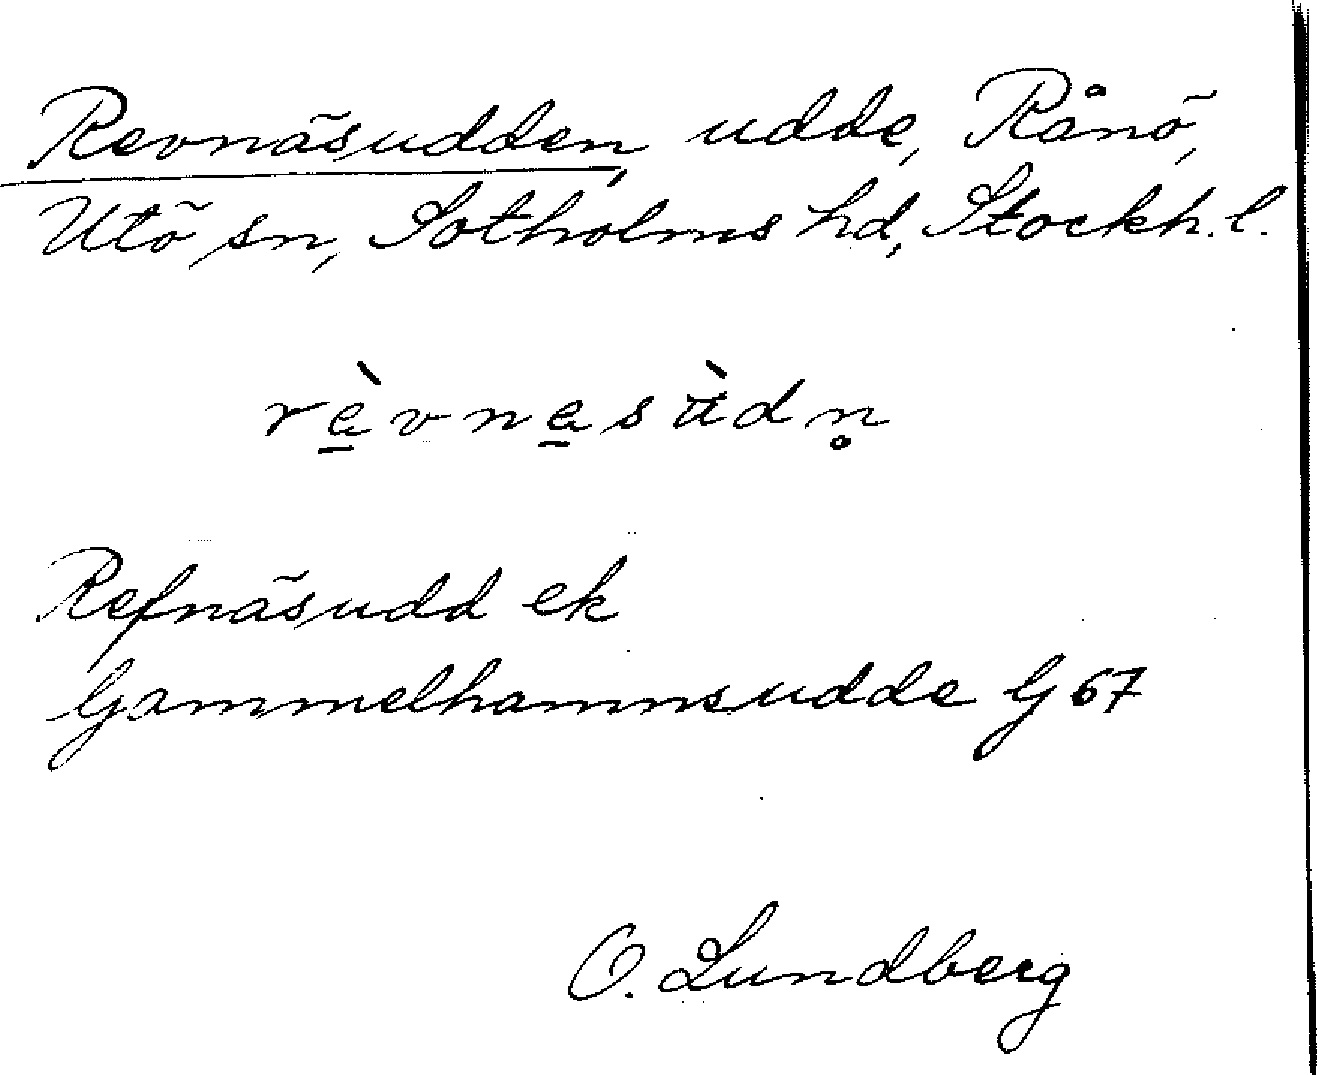 Revnäsudden, udde, Rånö,
Utö sn, Sotholms hd, Stockh. l.
rè̱vne̱sùdn̥
Refnäsudd ek
Gammelhamnsudde G 67
O. Lundberg